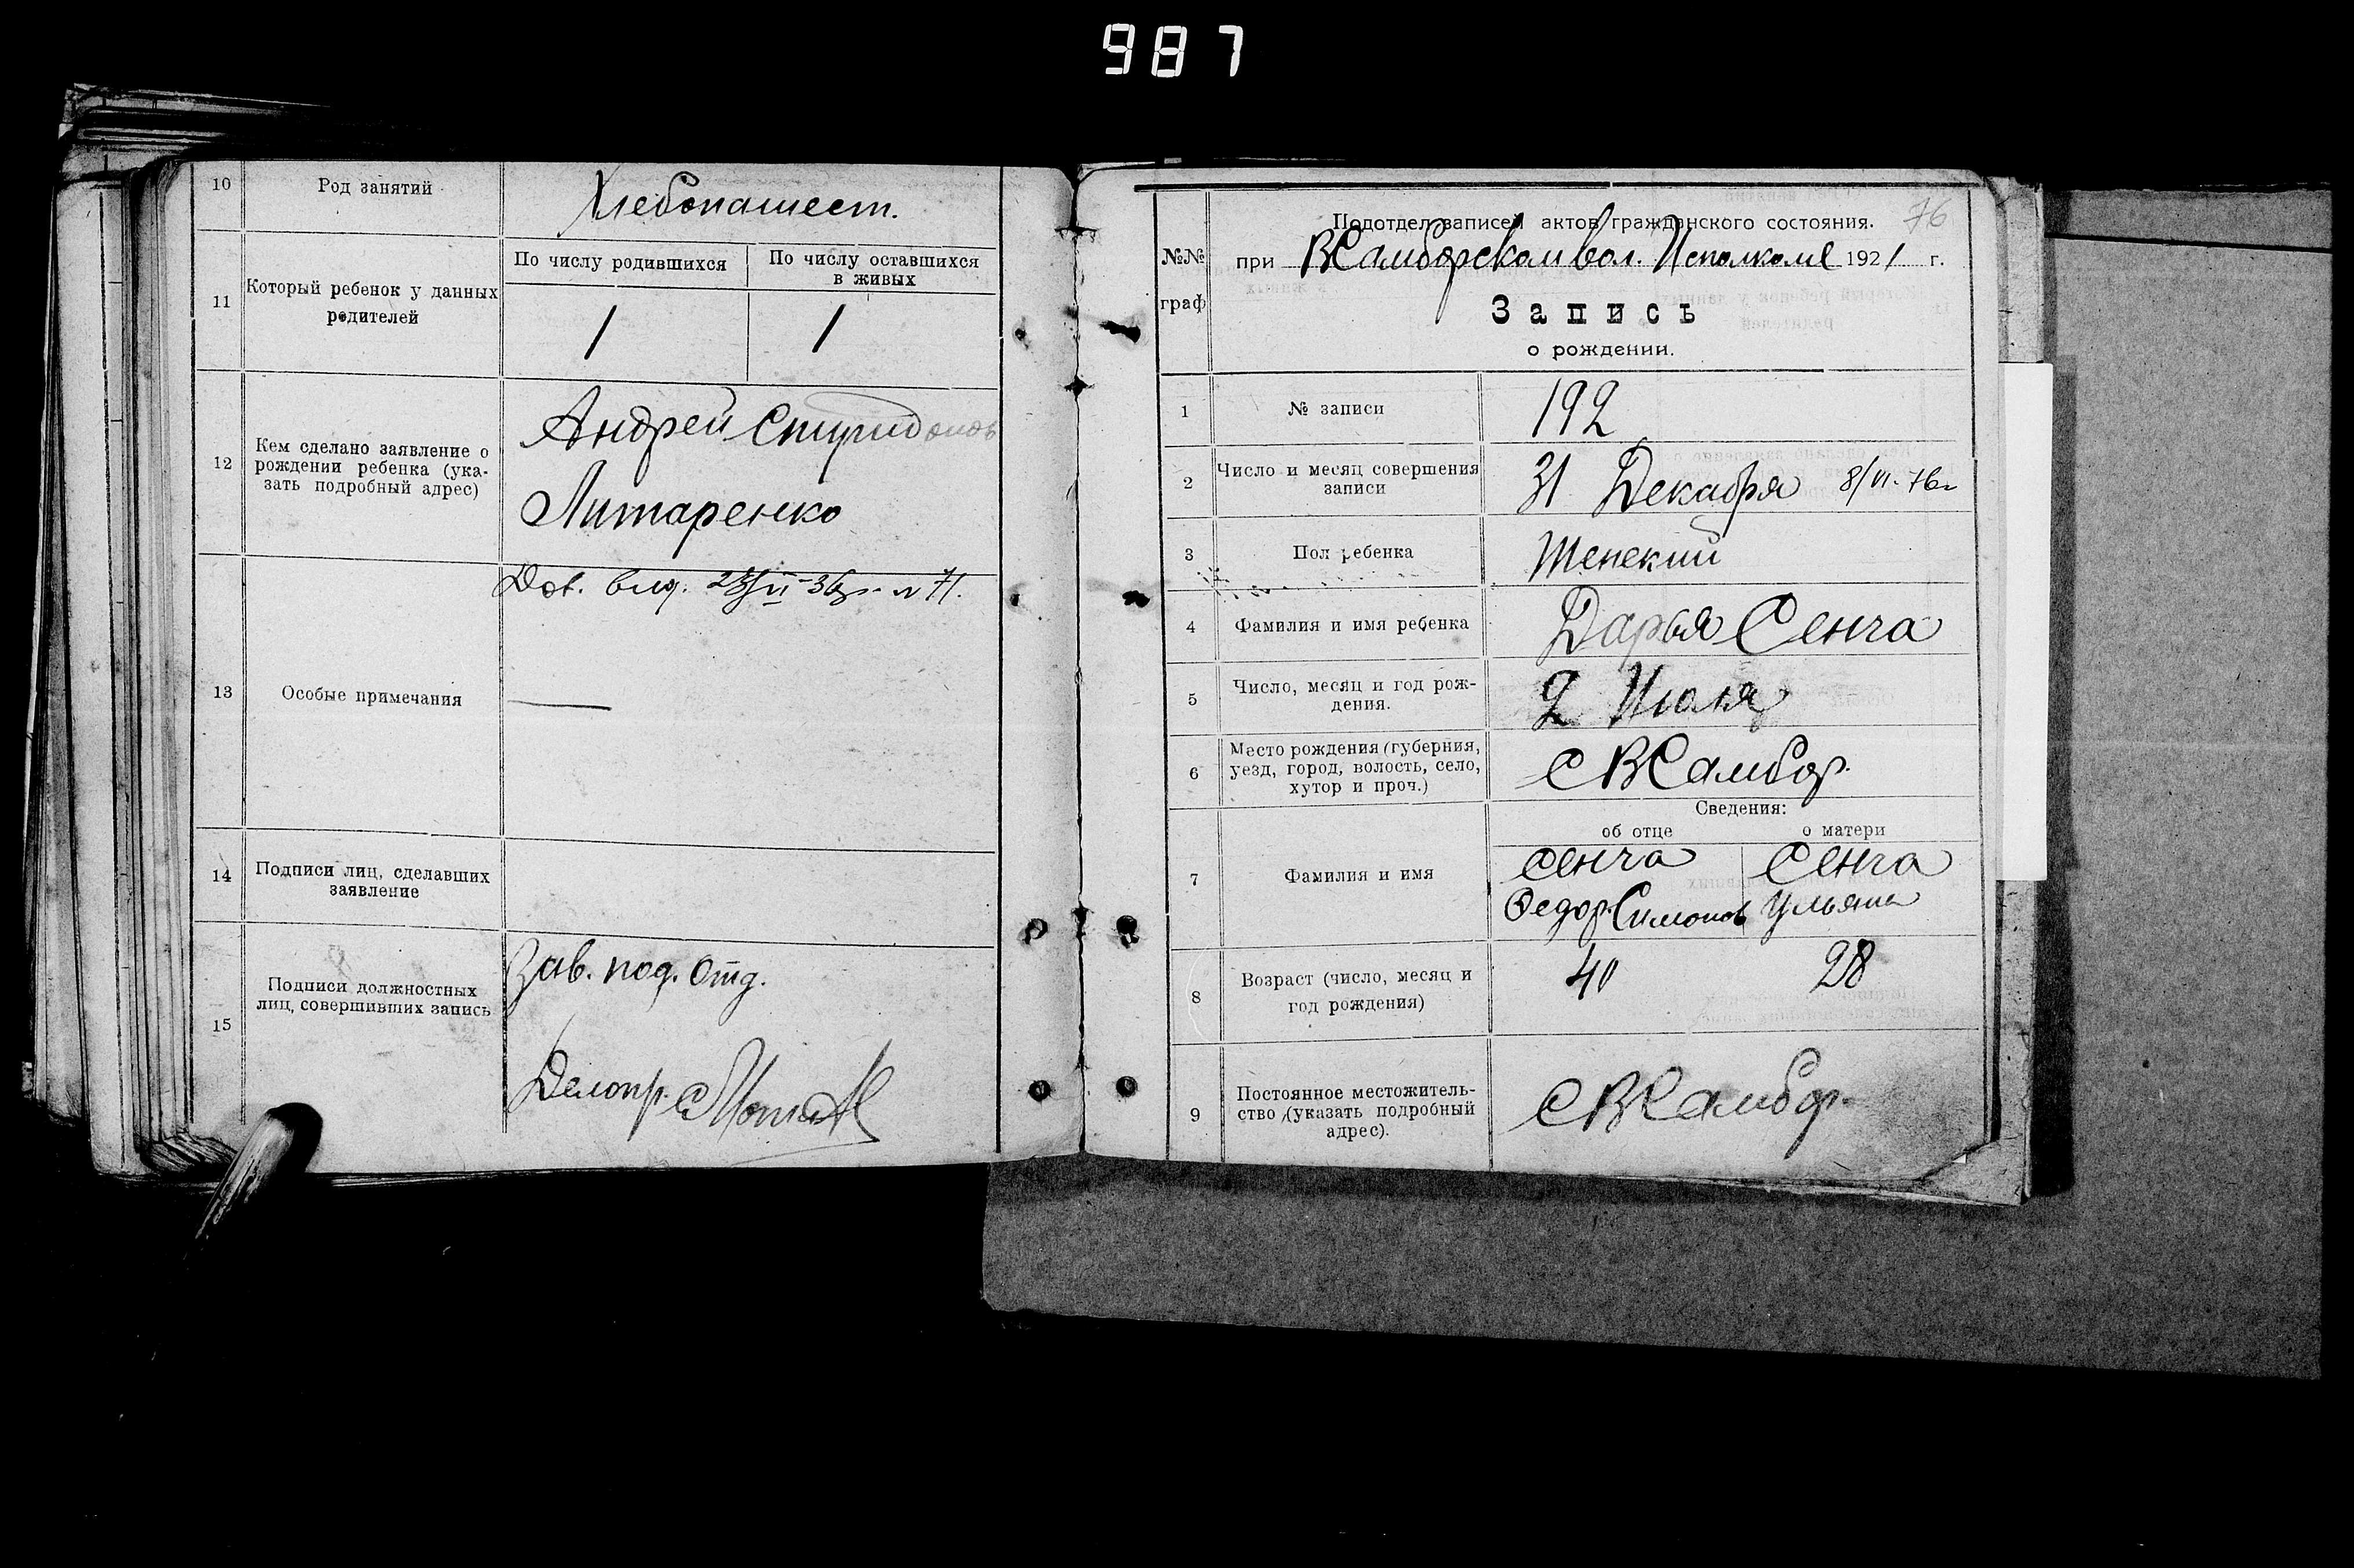 987
10 Род занятий Хлебопашест.
11 Который ребенок у данных родителей
По числу родившихся По числу оставшихся в живых
1 1
12 Кем сделано заявление о
рождении ребенка (ука-
зать подробный адрес)
Андрей Спиридонов
Литаренко
13 Особые примечания
14 Подписи лиц, сделавших
заявление
15 Подписи должностных
лиц, совершивших запись
Зав. под. Отд.
Делопр.
76
Подотдел записей актов гражданского состояния.
№№ граф
при ВСамборском вол. Исполкоме 1921 г.
Запись
о рождении.
1 № записи 192
2 Число и месяц совершения
записи
31 Декабря 8/VI-76г
3 Пол ребенка Женский
4 Фамилия и имя ребенка Дарья Сенча
5 Число, месяц и год рож-
дения.
2 Июля
6 Место рождения (губерния,
уезд, город, волость, село,
хутор и проч.)
С ВСамбор.
Сведения:
об отце о матери
7 Фамилия и имя
Сенча Сенча
Федор Симонов Ульяна
8 Возраст (число, месяц и
год рождения)
40 28
9 Постоянное местожитель-
ство (указать подробный
адрес).
С ВСамбор.